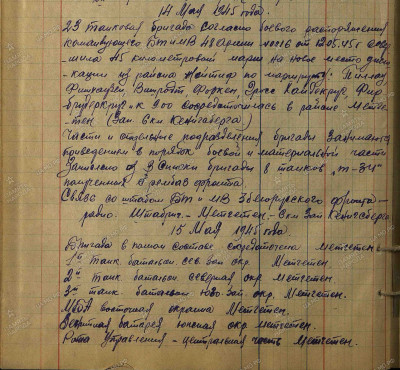 14 Мая 1945 года.
23 Танковая бригада согласно боевого распоряжения
командующего БТ и МВ 48 Армии № 0016 от 12.05.45г совер
шила 115 километровый марш на новое место дисло
кации из района по маршруту: Пиллау
Фишхаузен, Виткротт
к 9.00 сосредоточилась в районе Метге-
тен (зап 8км Кенигсберга)
Части и отдельные подразделения бригады занимаются
приведением в порядок боевой и материальной части
Зачислено в списки бригады 8 танков „Т-34"
полученных с фронта
Связь со штабом БТ и МВ 3 белорусского фронта -
радио. Штабриг - Метгетен - 8км зап Кенигсберга
15 Мая 1945 года
Бригада в полном составе сосредоточена Метгетен
1й танк. батальон сев. зап окр. Метгетен
2й танк батальон северная окр Метгетен.
3й танк. батальон юго-зап. окр. Метгетен.
восточная окраина Метгетен.
Зенитная батарея южная окр Метгетен.
Рота Управления - центральная часть Метгетен.